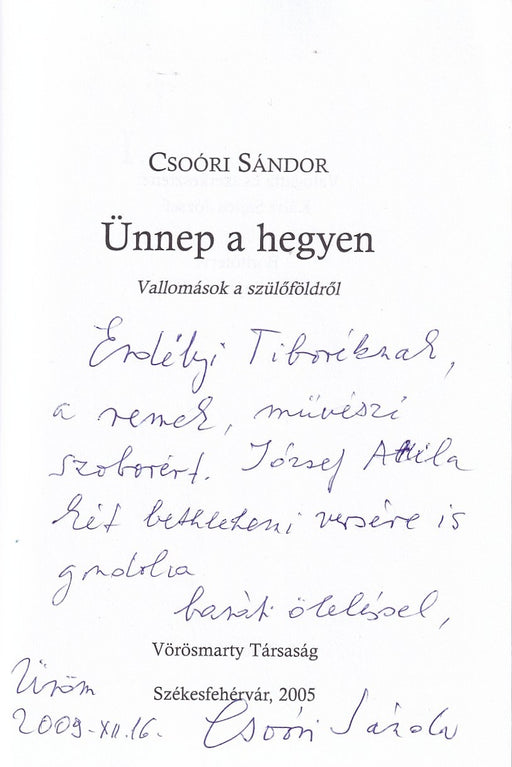 CSOÓRI SÁNDOR
Ünnep a hegyen
Vallomások a szülőföldről
Erdélyi Tiboréknak,
a remek, művészi
szoborért. József Attila
két bethlehemi versére is
gondolva
baráti öleléssel,
Vörösmarty Társaság
Székesfehérvár, 2005
Üröm
2009-XII.16.
Csoóri Sándor